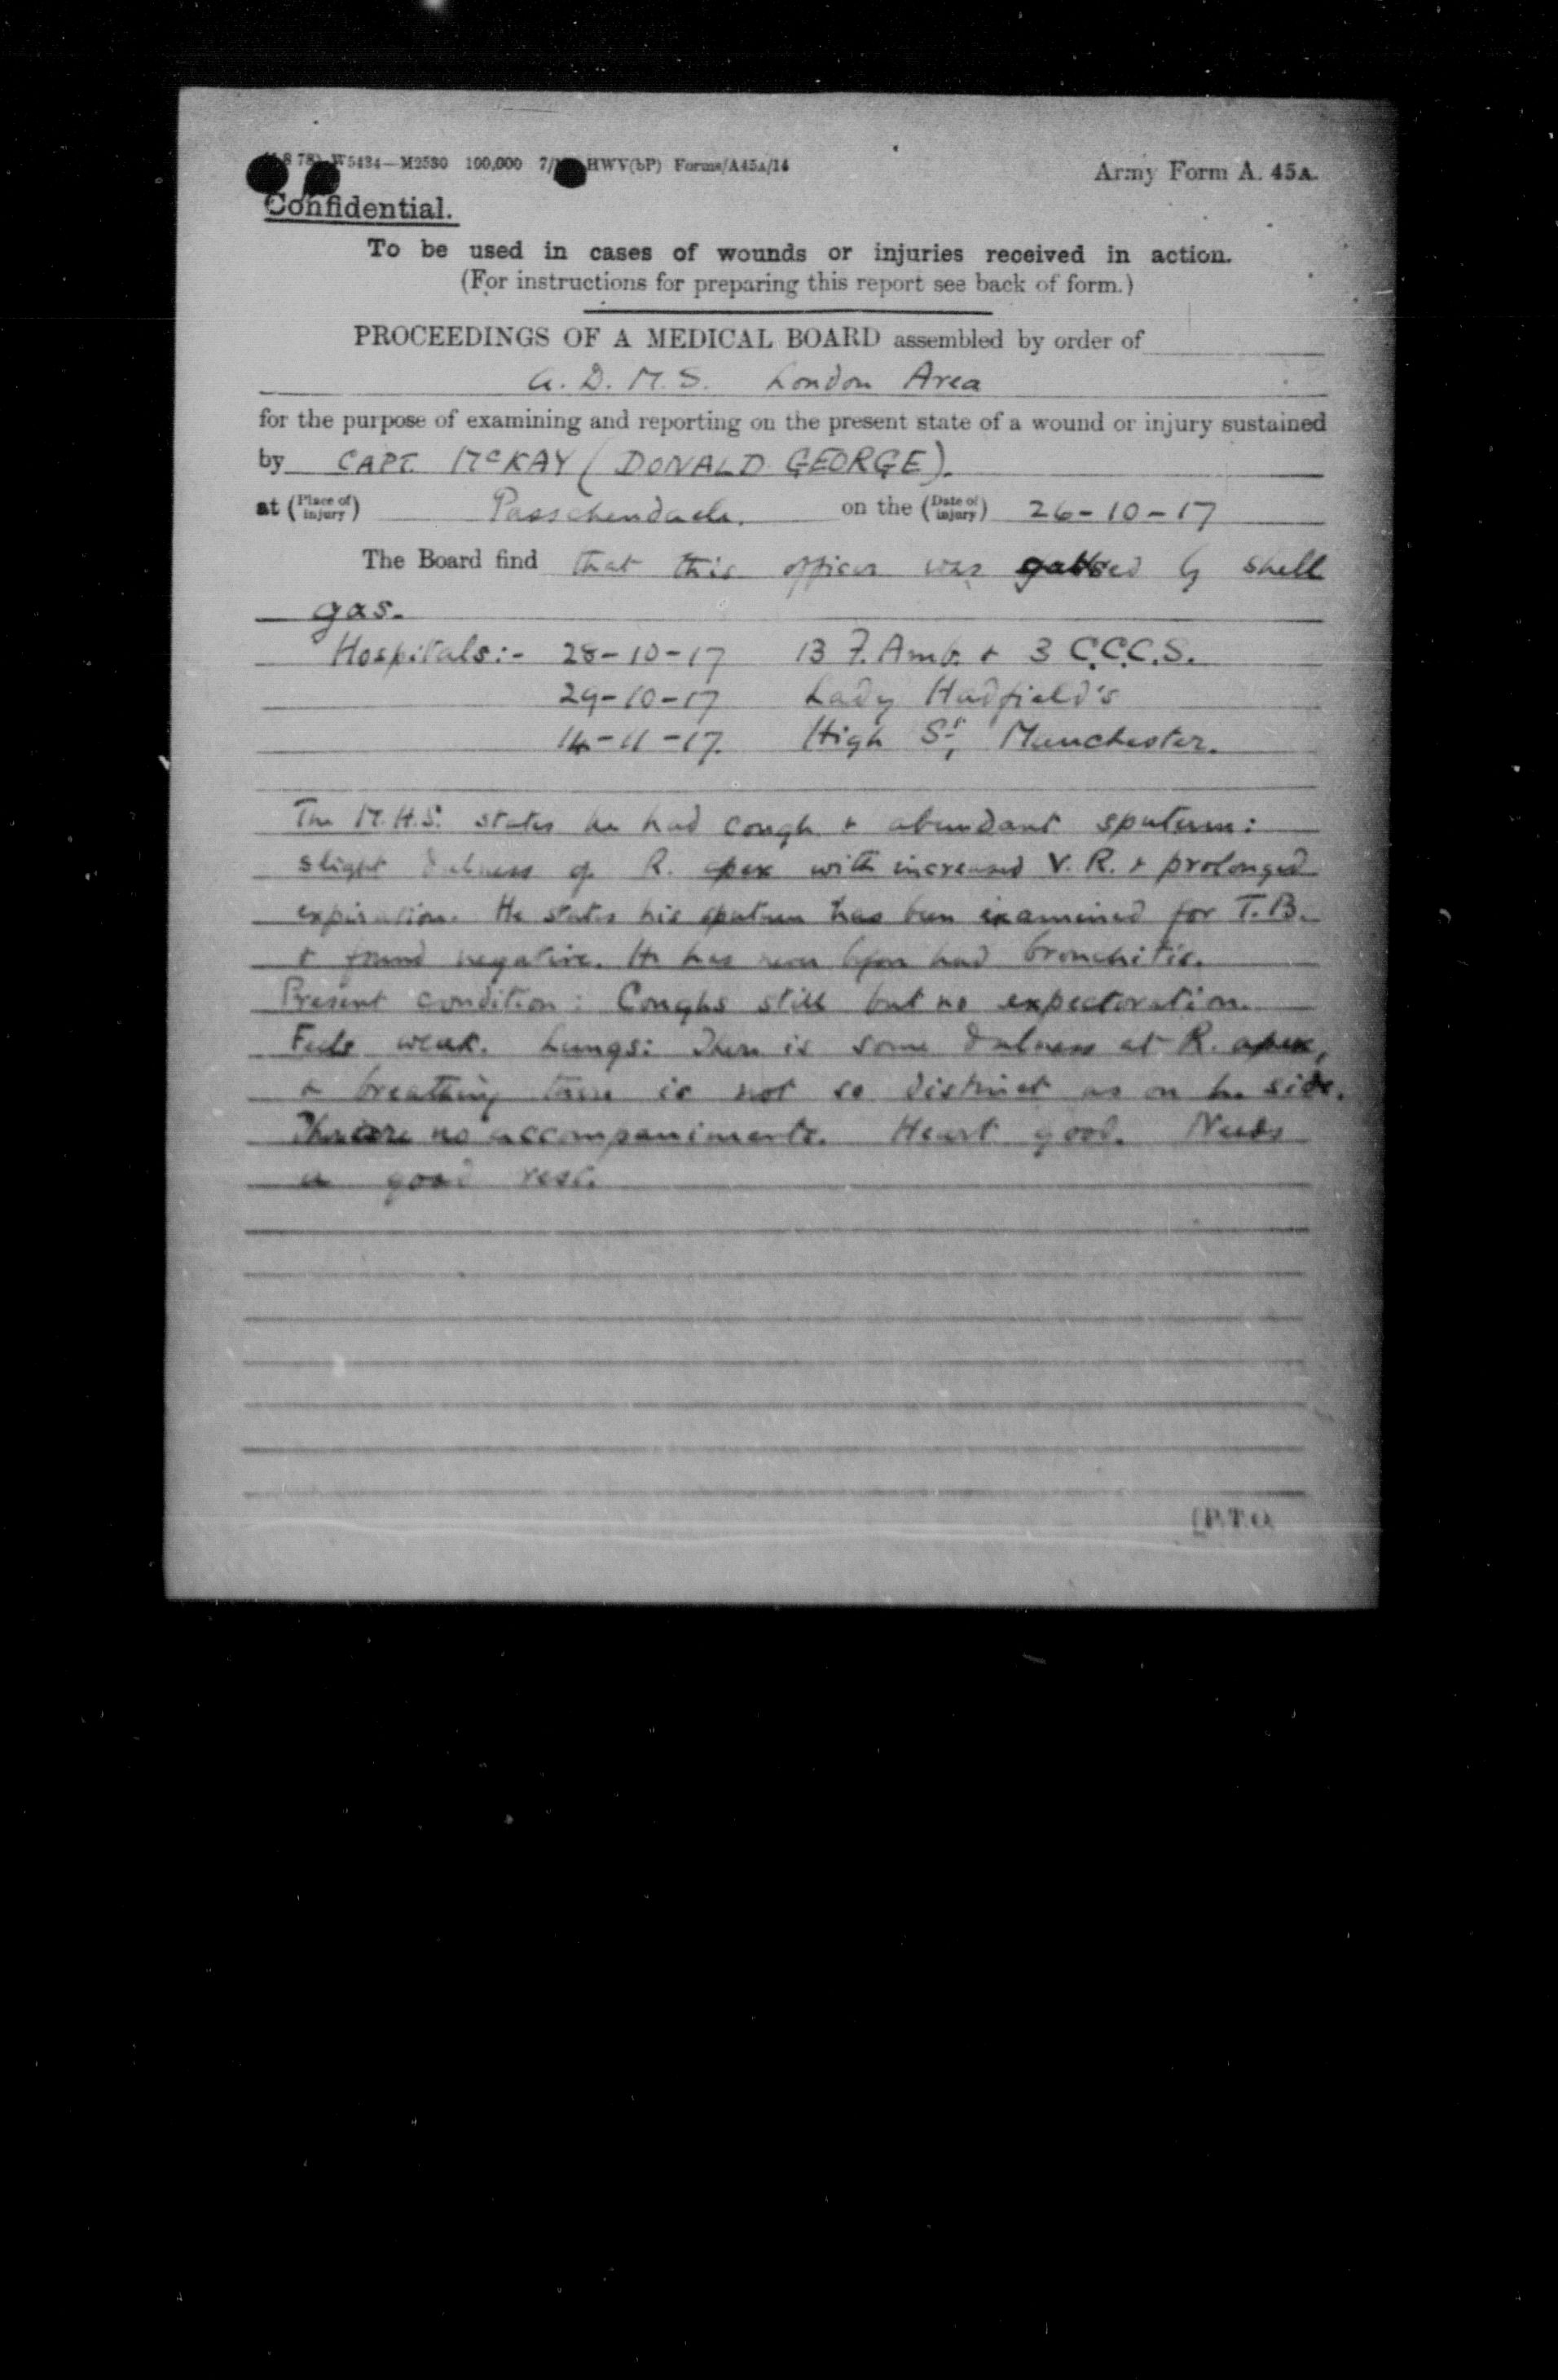 W5434—M2530 100,000 7/ HWV(bP) Forms/A45A/14
Army Form A. 45A.
Confidential.
To be used in cases of wounds or injuries received in action.
(For instructions for preparing this report see back of form.)
PROCEEDINGS OF A MEDICAL BOARD assembled by order of
A. D. M. S. London Area
for the purpose of examining and reporting on the present state of a wound or injury sustained
by CAPT. McKAY (DONALD GEORGE).
at (Place of injury) Passchendaele. on the (Date of injury) 26-10-17
The Board find that this officer was gassed by shell
gas.
Hospitals:- 28-10-17 13 F. Amb. + 3 C.C.C.S.
29-10-17 Lady Hadfield's
14-11-17. High St, Manchester.
The M.H.S. states he had cough + abundant sputum:
slight dulness of R. apex with increased V. R. + prolonged
expiration. He states his sputum has been examined for T.B.
+ found negative. He has never before had bronchitis.
Present condition: Coughs still but no expectoration.
Feels weak. Lungs: There is some dulness at R. apex,
+ breathing there is not so distinct as on side.
There are no accompaniments. Heart good. Needs
a good rest.
[P.T.O.